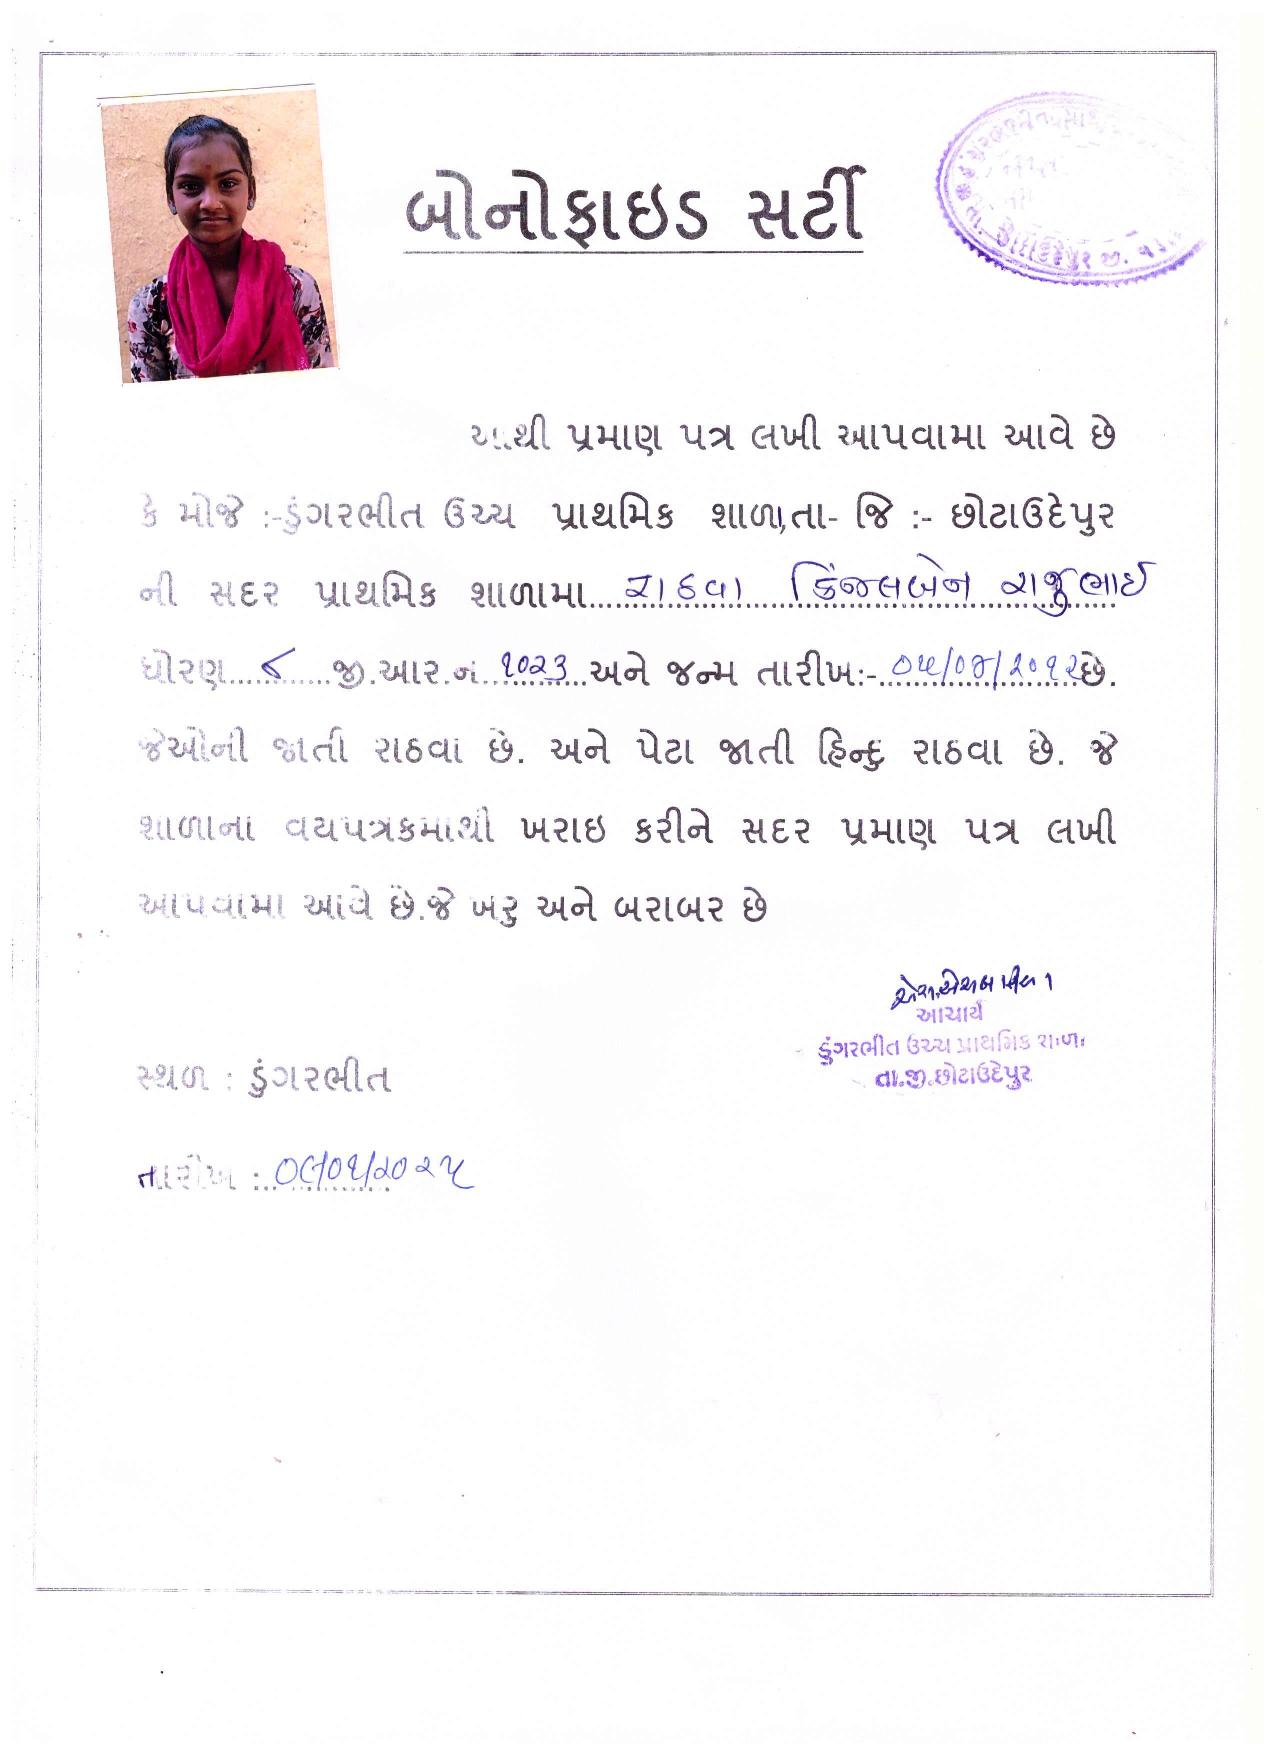 બોનોફાઇડ સર્ટી
આથી પ્રમાણ પત્ર લખી આપવામા આવે છે
કે મોજે :-ડુંગરભીત ઉચ્ચ પ્રાથમિક શાળા,તા- જિ :- છોટાઉદેપુર
ની સદર પ્રાથમિક શાળામા....રાઠવા કિંજલબેન રાજુભાઈ
ધોરણ....૮.....જી.આર.નં..૧૦૨૩..અને જન્મ તારીખ:-..૦૫/૦૪/૨૦૧૨છે.
જેઓની જાતી રાઠવા છે. અને પેટા જાતી હિન્દુ રાઠવા છે. જે
શાળાના વયપત્રકમાથી ખરાઇ કરીને સદર પ્રમાણ પત્ર લખી
આપવામા આવે છે.જે ખરુ અને બરાબર છે
આચાર્ય
ડુંગરભીત ઉચ્ચ પ્રાથમિક શાળા
તા.જી.છોટાઉદેપુર
સ્થળ : ડુંગરભીત
તારીખ :..૦૯/૦૧/૨૦૨૫